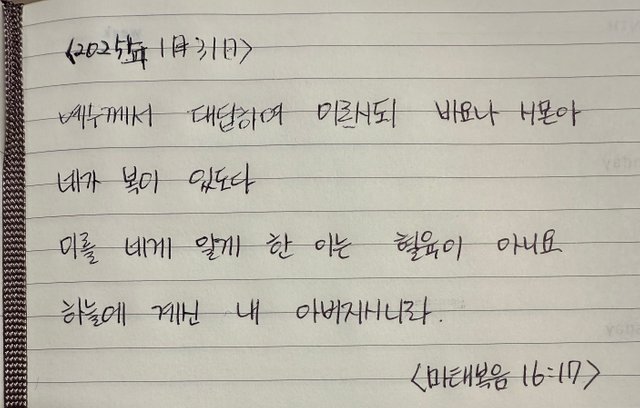 <2025년 1月 31日>
예수께서 대답하여 이르시되 바요나 시몬아
네가 복이 있도다
이를 네게 알게 한 이는 혈육이 아니요
하늘에 계신 내 아버지시니라.
<마태복음 16:17>